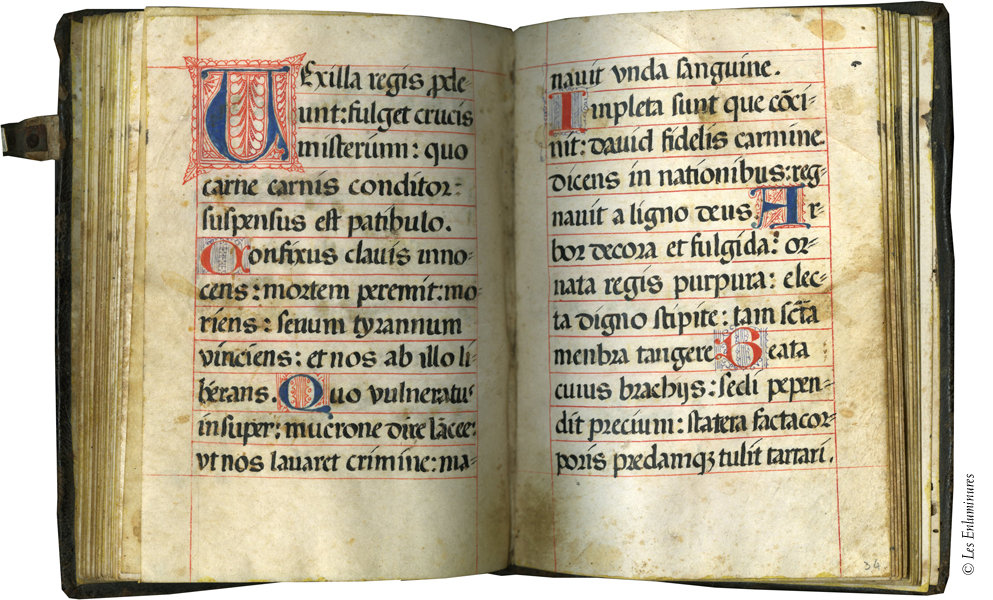 UExilla regis ꝓde
unt: fulget crucis
misterium: quo
carne carnis conditor:
suspensus est patibulo.
Confixus clavis inno⸗
cens: mortem peremit: mo⸗
riens: seuum tyrannum
vinciens: et nos ab illo li⸗
berans. Quo vulneratus
insuper: mucrone dire lãcee:
vt nos lavaret crimine: ma⸗
navit vnda sanguine.
Impleta sunt que cõci⸗
nit: david fidelis carmine.
dicens in nationibus: reg⸗
navit a ligno deus. Ar⸗
bor decora et fulgida: or⸗
nata regis purpura: elec⸗
ta digno stipite: tam sctã
menbra tangere. Beata
cuius brachijs: sedi pepen⸗
dit precium: statera facta cor⸗
poris predamqʒ tulit tartari.
34
© Les Enluminures